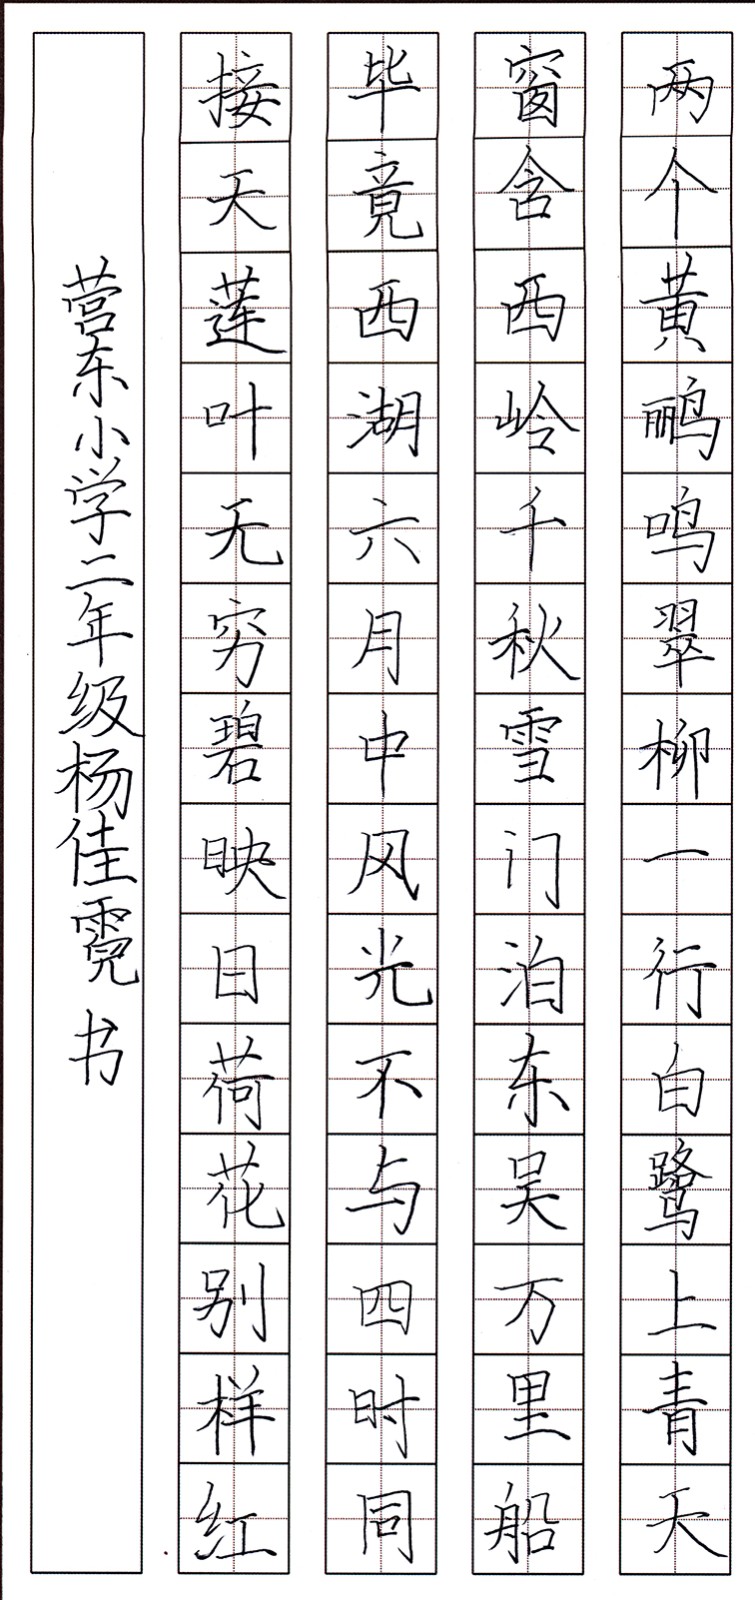 两个黄鹂鸣翠柳一行白鹭上青天
窗含西岭千秋雪门泊东吴万里船
毕竟西湖六月中风光不与四时同
接天莲叶无穷碧映日荷花别样红
营东小学二年级杨佳霓书